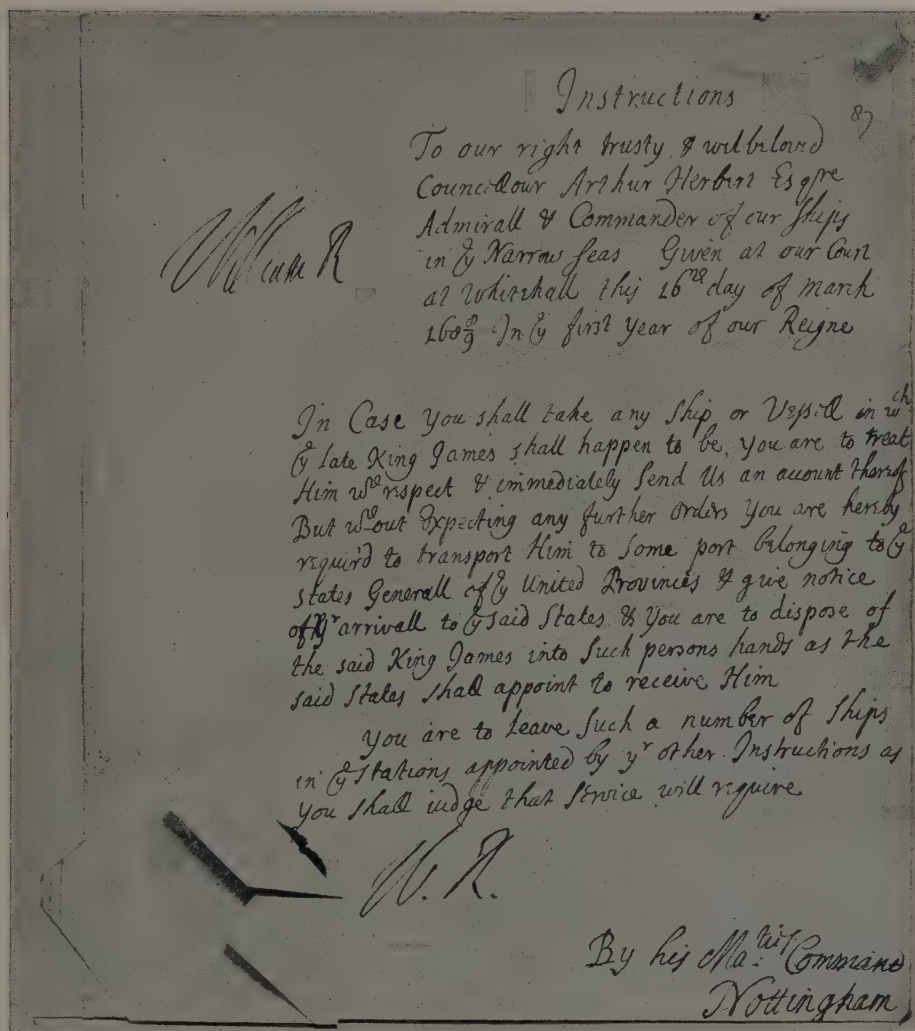 Instructions
87
To our right trusty & welbeloved
Councellour Arthur Herbert Esqre
Admirall & Commander of our Ships
William R
in ye Narrow Seas Given at our Court
at Whitehall this 16th day of march
168 8/9 In ye first year of our Reigne
In Case you shall take any Ship or Vessell in wch
ye late King James shall happen to be, you are to treat
Him wth respect & immediately Send Us an acount thereof
But wthout Expecting any further orders you are hereby
requir'd to transport Him to Some port belonging to ye
States Generall of ye United Provinces & give notice
of yr arrivall to ye said States & you are to dispose of
the said King James into Such persons hands as the
said States shall appoint to receive Him
you are to Leave Such a number of Ships
in ye Stations appointed by yr other Instructions as
you shall iudge that Service will require
W. R.
By his Ma:ties Command
Nottingham